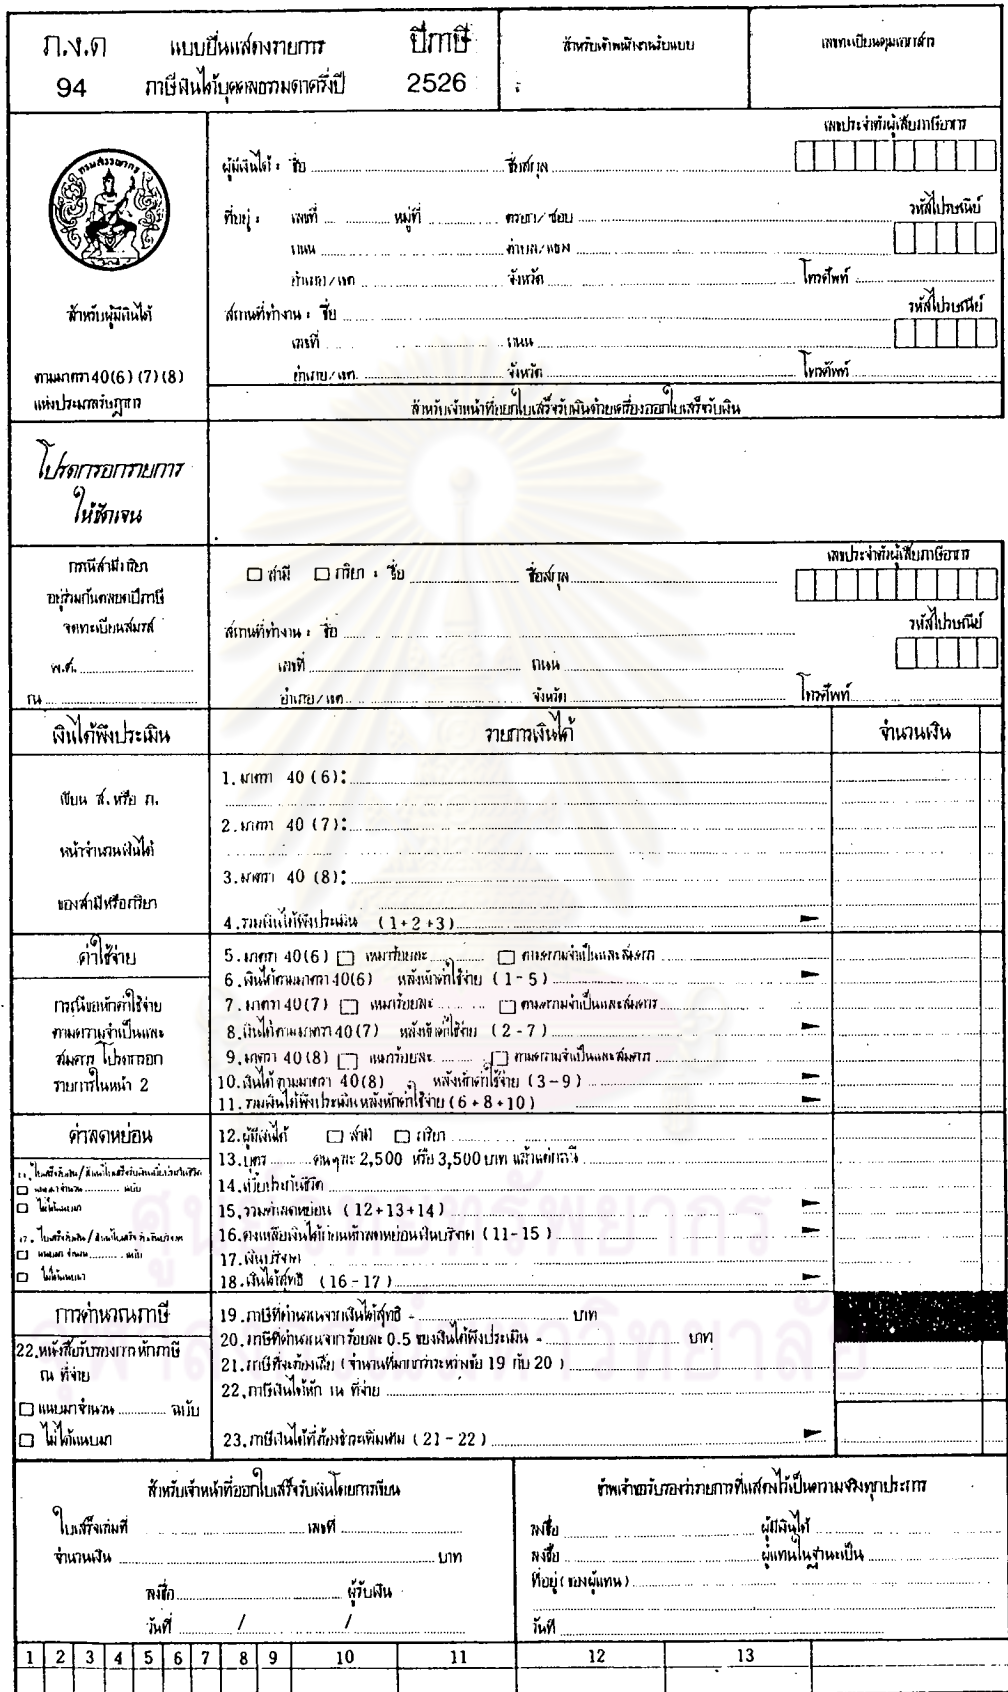 ภ.ง.ด 94
แบบยื่นแสดงรายการ
ภาษีเงินได้บุคคลธรรมดาครึ่งปี
ปีภาษี 2526
สำหรับเจ้าพนักงานรับแบบ
เลขทะเบียนคุมเอกสาร
กรมสรรพากร
สำหรับผู้มีเงินได้
ตามมาตรา 40(6) (7) (8)
แห่งประมวลรัษฎากร
เลขประจำตัวผู้เสียภาษีอากร
ผู้มีเงินได้ : ชื่อ ชื่อสกุล
รหัสไปรษณีย์
ที่อยู่ : เลขที่ หมู่ที่ ตรอก/ซอย
ถนน ตำบล/แขวง
อำเภอ/เขต จังหวัด โทรศัพท์
รหัสไปรษณีย์
สถานที่ทำงาน : ชื่อ
เลขที่ ถนน
อำเภอ/เขต จังหวัด โทรศัพท์
สำหรับเจ้าหน้าที่ออกใบเสร็จรับเงินด้วยเครื่องออกใบเสร็จรับเงิน
โปรดกรอกรายการ
ให้ชัดเจน
กรณีสามีภริยา
อยู่ร่วมกันตลอดปีภาษี
จดทะเบียนสมรส
พ.ศ.
ณ
เลขประจำตัวผู้เสียภาษีอากร
สามี ภริยา : ชื่อ ชื่อสกุล
รหัสไปรษณีย์
สถานที่ทำงาน : ชื่อ
เลขที่ ถนน
อำเภอ/เขต จังหวัด โทรศัพท์
เงินได้พึงประเมิน รายการเงินได้ จำนวนเงิน
เขียน ส. หรือ ภ.
หน้าจำนวนเงินได้
ของสามีหรือภริยา
1. มาตรา 40 (6):
2. มาตรา 40 (7):
3. มาตรา 40 (8):
4. รวมเงินได้พึงประเมิน (1+2+3)
ค่าใช้จ่าย
กรณีขอหักค่าใช้จ่าย
ตามความจำเป็นและ
สมควร โปรดกรอก
รายการในหน้า 2
5. มาตรา 40(6) เหมาร้อยละ ตามความจำเป็นและสมควร
6. เงินได้ตามมาตรา 40(6) หลังหักค่าใช้จ่าย (1-5)
7. มาตรา 40(7) เหมาร้อยละ ตามความจำเป็นและสมควร
8. เงินได้ตามมาตรา 40(7) หลังหักค่าใช้จ่าย (2-7)
9. มาตรา 40(8) เหมาร้อยละ ตามความจำเป็นและสมควร
10. เงินได้ตามมาตรา 40(8) หลังหักค่าใช้จ่าย (3-9)
11. รวมเงินได้พึงประเมินหลังหักค่าใช้จ่าย (6+8+10)
ค่าลดหย่อน
แนบมาจำนวน ฉบับ
ไม่ได้แนบมา
แนบมา จำนวน ฉบับ
ไม่ได้แนบมา
12. ผู้มีเงินได้ สามี ภริยา
13. บุตร คนๆ ละ 2,500 หรือ 3,500 บาท แล้วแต่กรณี
14. เบี้ยประกันชีวิต
15. รวมค่าลดหย่อน (12+13+14)
16. คงเหลือเงินได้ก่อนหักลดหย่อนเงินบริจาค (11-15)
17. เงินบริจาค
18. เงินได้สุทธิ (16-17)
การคำนวณภาษี
22. หนังสือรับรองการหักภาษี
ณ ที่จ่าย
แนบมาจำนวน ฉบับ
ไม่ได้แนบมา
19. ภาษีที่คำนวณจากเงินได้สุทธิ - บาท
20. ภาษีที่คำนวณจากร้อยละ 0.5 ของเงินได้พึงประเมิน - บาท
21. ภาษีที่จะต้องเสีย (จำนวนที่มากกว่าระหว่างข้อ 19 กับ 20)
22. ภาษีเงินได้หัก ณ ที่จ่าย
23. ภาษีเงินได้ที่ต้องชำระเพิ่มเติม (21-22)
สำหรับเจ้าหน้าที่ออกใบเสร็จรับเงินโดยการเขียน
ใบเสร็จเล่มที่ เลขที่
จำนวนเงิน บาท
ลงชื่อ ผู้รับเงิน
วันที่ / /
ข้าพเจ้าขอรับรองว่ารายการที่แสดงไว้เป็นความจริงทุกประการ
ลงชื่อ ผู้มีเงินได้
ลงชื่อ ผู้แทนในฐานะเป็น
ที่อยู่ (ของผู้แทน)
วันที่
1 2 3 4 5 6 7 8 9 10 11 12 13
ศูนย์วิทยทรัพยากร
จุฬาลงกรณ์มหาวิทยาลัย